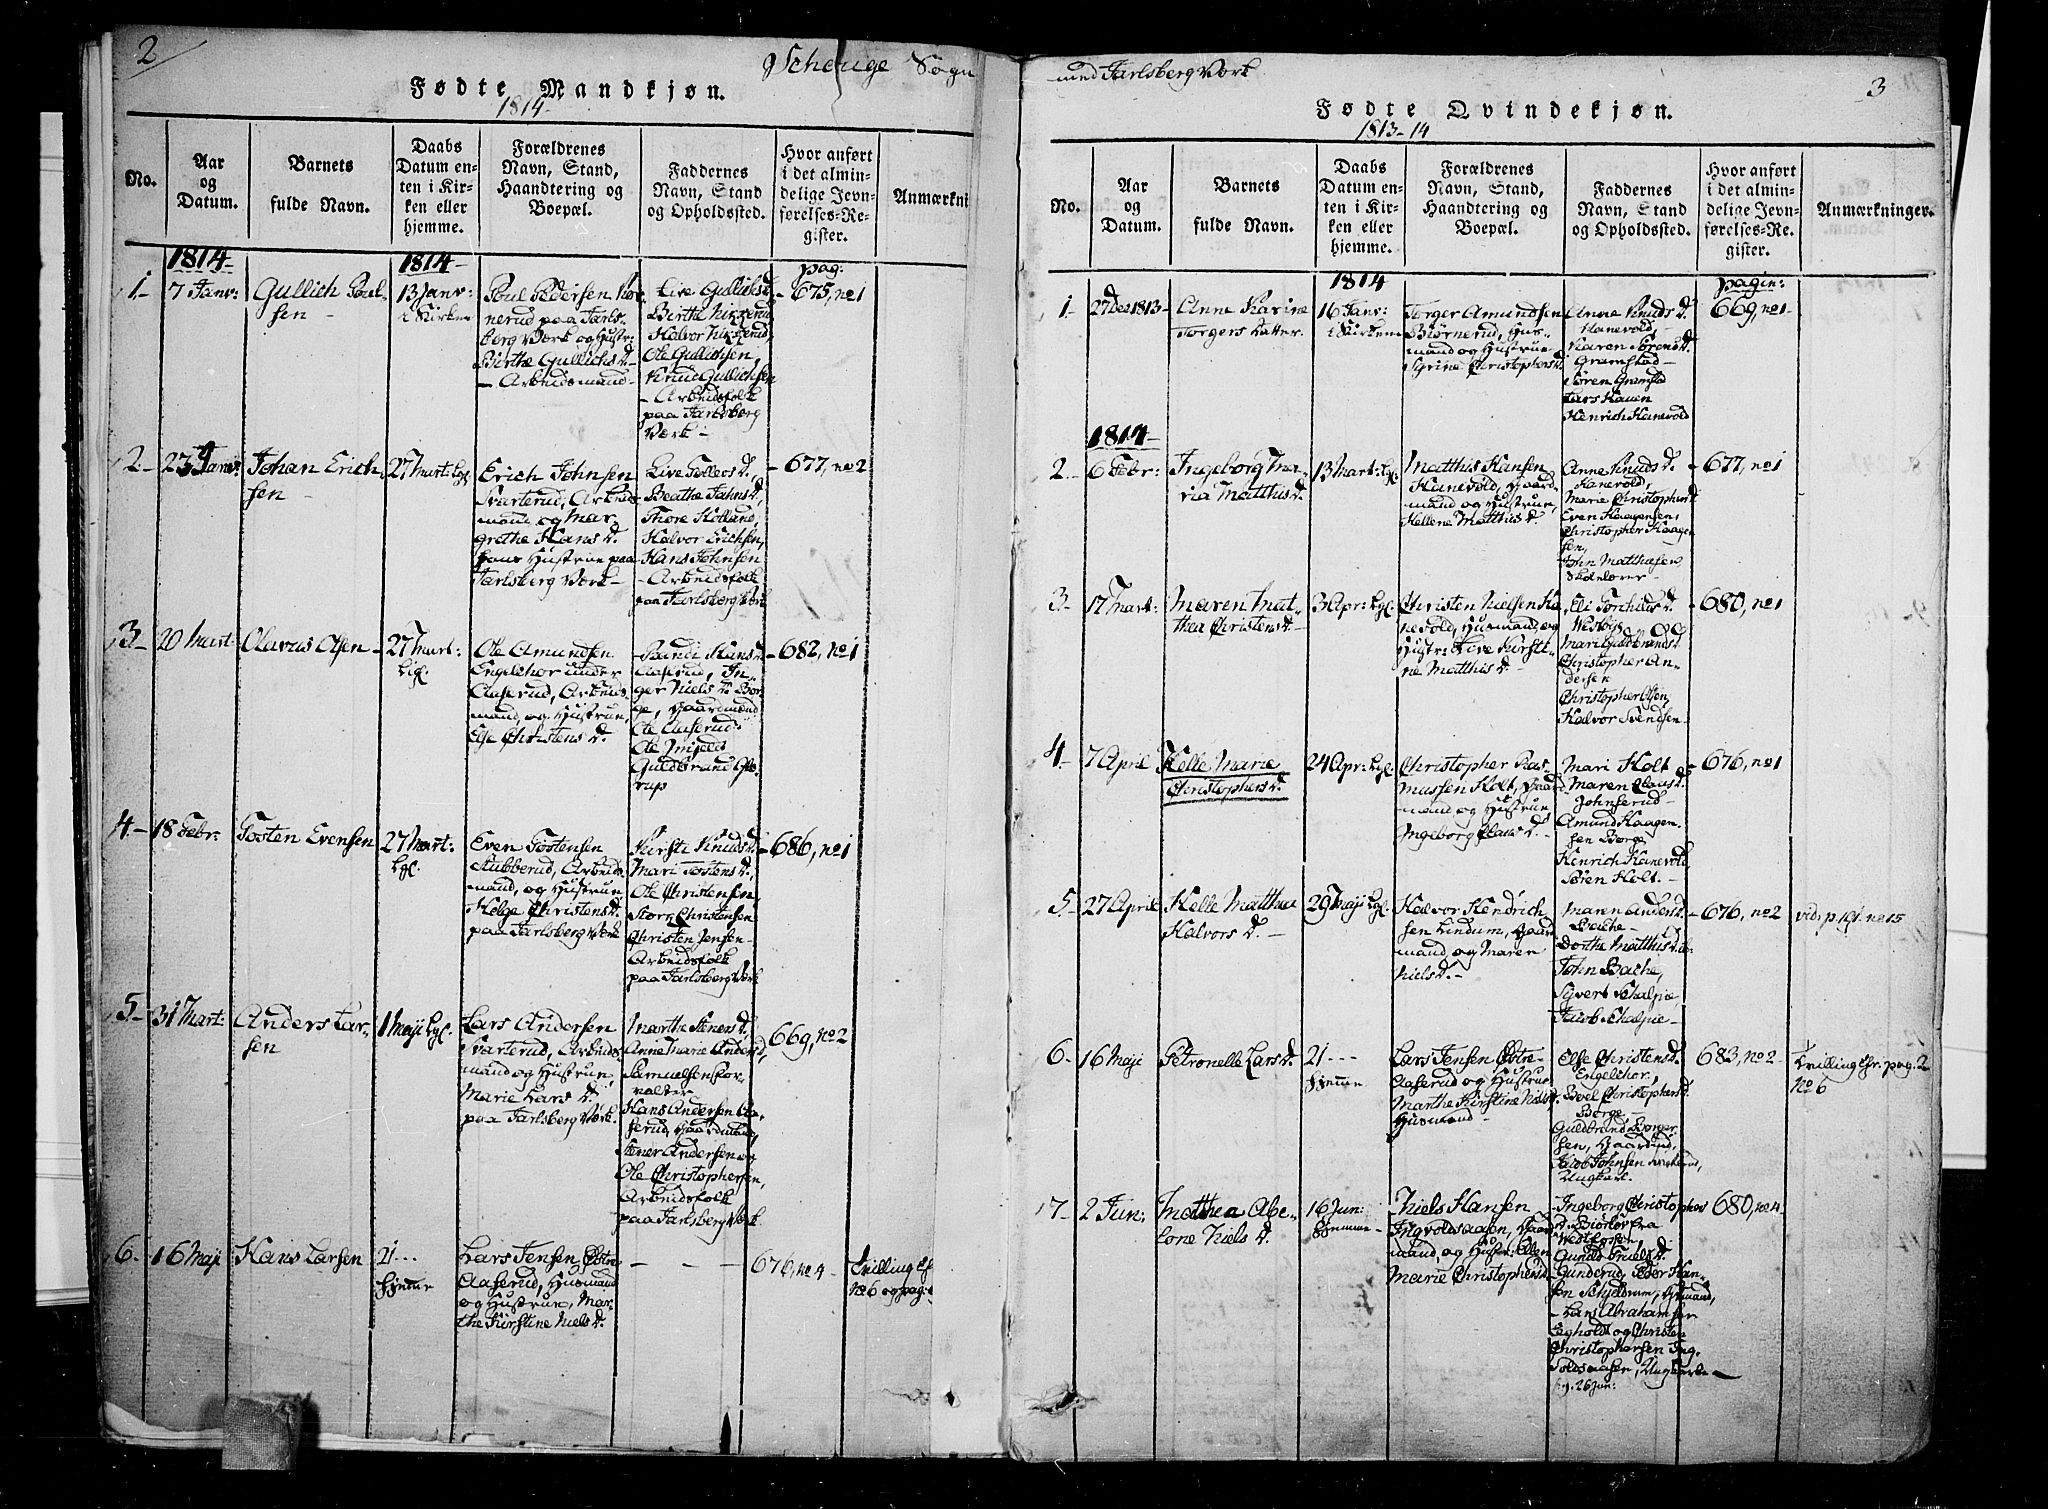 2
Schouge Sogn
Fødte Mandkjøn.
1814
No.
Aar
og
Datum.
Barnets
fulde Navn.
Daabs
Datum en-
ten i Kir-
ken eller
hjemme.
Forældrenes
Navn, Stand,
Haandtering og
Boepæl.
Faddernes
Navn, Stand
og Opholdssted.
Hvor anført
i det almin-
delige Jevn-
førelses-Re-
gister.
Anmærkni
1.-
1814
7 Janv:
Gullich Poul-
sen -
1814
13 Janv:
i Kirken
Poul Pedersen
nerud paa Jarls-
berg Værk og Hustr:
Birthe Gullichs D.
- Arbeidsmand-
Live Gullichs D.
Berthe
Halvor
Ole Gullichsen,
Knud Gullichsen
- Arbeidsfolk
paa Jarlsberg
Værk -
pag:
- 675, no 1
2.-
23 Janv:
Johan Erich-
sen -
27 Mart: Kgl.
Erich Johnsen
Svarterud, Arbeids-
mand og Mar-
grethe Hans D.
hans Hustrue paa
Jarlsberg Værk -
Live Tolleos D.,
Beathe Jahns D.,
Thore Holland,
Halvor Erichsen,
Hans Johnsen
- Arbeidsfolk
paa Jarlsberg Værk
- 677, no 2
3.-
20 Mart:
Olavus Olsen -
27 Mart:
Kgl.
Ole Amundsen
Engelhor under
Aaserud, Arbeids-
mand, og Hustrue,
Else Christens D.
- Randi Hans D.
Aaserud, In-
ger Niels D. Bor-
ge, Gaardmænd
Ole Aaserud-
Ole
Guldbrand Glo-
rup
- 682, no 1
4.-
18 Febr:
Tosten Evensen
27 Mart:
Kgl.
Even Tostensen
Stubberud, Arbeids-
mand, og Hustrue
Helge Christens D.
paa Jarlsberg Værk
Kirsti Knuds D.
Mari Tostens D.,
Ole Christensen,
Storg Christensen
Christen Jensen-
Arbeidsfolk
paa Jarlsberg Værk
- 686, no 1
5.-
31 Mart:
Anders Lar-
sen
1 Maji Kgl.
Lars Andersen
Svarterud, Arbeids-
mand og Hustrue,
Marie Lars D.
paa Jarlsberg Værk.
Marthe Steners D.
Anne Marie Anders D.
Samuelsen for-
valter
Hans Andersen Aa-
serud,
Stener Andersen og
Ole Christophersen,
Arbeidsfolk
paa Jarlsberg Værk
669, no 2
6.-
16 Maji
Hans Larsen
21 - - -
Hjemme
Lars Jensen Østre
Aaserud, Husmand
og Hustrue, Mar-
the Kirstine Niels D.
- - -
676, no 4
Tvilling cfr
no 6 og pag:
med Jarlsberg Værk
3
Fødte Qvindekjøn.
1813-14
No.
Aar
og
Datum.
Barnets
fulde Navn.
Daabs
Datum en-
ten i Kir-
ken eller
hjemme.
Forældrenes
Navn, Stand,
Haandtering og
Boepæl.
Faddernes
Navn, Stand
og Opholdssted.
Hvor anført
i det almin-
delige Jevn-
førelses-Re-
gister.
Anmærkninger.
1-
27 Dec 1813-
Anne Karine
Torgers Datter.
1814
16 Janv:
i Kirken
Torger Amundsen
Biørnerud, Hus-
mand og Hustrue
Syrine Christophers D.
Anne Knuds D.
Hanevold,-
Karen Sørens D.
Gramstad-
Søren Gramstad
Lars Hauen
Henrich Hanevold
pagin:
669, no 1-
2.-
1814-
6 Febr:
Ingeborg Ma-
ria Matthis D.
13 Mart: Kgl
Matthis Hansen
Hanevold, Gaard-
mand og Hustrue,
Hellene Matthis D.
Anne Knuds D.
Hanevold,
Marie Christophers D.
Even Haagensen,
Christopher Haagen-
sen,
John Matthisen
Skolelærer-
- 677, no 1
3-
17 Mart:
Maren Mat-
thea Christens D.
3 Apr: Kgl.
Christen Nielsen Ha-
nevold, Husmand, og
Hustr: Live Kirsti-
ne Matthis D. -
Eli Torchilds D.
Westbye
Mari Guldbrands D.
Christopher An-
dersen
Christopher Olsen,
Halvor Svendsen-
- 680, no 1
4-
7 April
Helle Marie
Christophers D.
24 Apr: Kgl.
Christopher Ras-
mussen Holt, Gaard-
mand og Hustrue
Ingeborg Claus D. -
Mari Holt
Maren Claus D.
Johnserud-
Amund Haagen-
sen Borge,
Henrich Hanevold
Søren Holt. -
- 676, no 1
5.-
27 April
Helle Matthea
Halvors D. -
29 Maji Kgl.
Halvor Hendrich-
sen Lindum, Gaard-
mand, og Maren
Niels D. -
Maren Anders D.
Bache-
Dorthe Matthis D.
John Bache,
Syvert Schalpie
Jacob Schalpie-
- 676, no 2
vid. p. 191. no 15
6-
16 Maji
Petronelle Lars D.
21 - - -
Hjemme
Lars Jensen Østre-
Aaserud og Hustrue
Marthe Kirstine Niels D.
Husmand -
Else Christens D.
Engelhor,
Sevel Christophers D.
Borge-
Guldbrand Borger-
sen, Gaardmd,
Jacob Johnsen
Ungkarl.
683, no 2-
Tvilling cfr. pag. 2
no 6
7.-
2 Jun:
Mathea Abe-
lone Niels D.
16 Jun:
Hjemme-
Niels Hansen
Ingvoldsaasen, Gaard-
mand, og Hustr: Ellen
Marie Christophers D.
- Ingeborg Christophers
D. Biørløv fra
Westfossen,
Gunild Truels D.
Gunderud, Peder Han-
sen Schjelrum,
- Lars Abrahamsen
Eegholt og Christen
Christophersen Ing-
voldsaasen, Ungkarle-
Kg. 26 Jun:
680, no 4